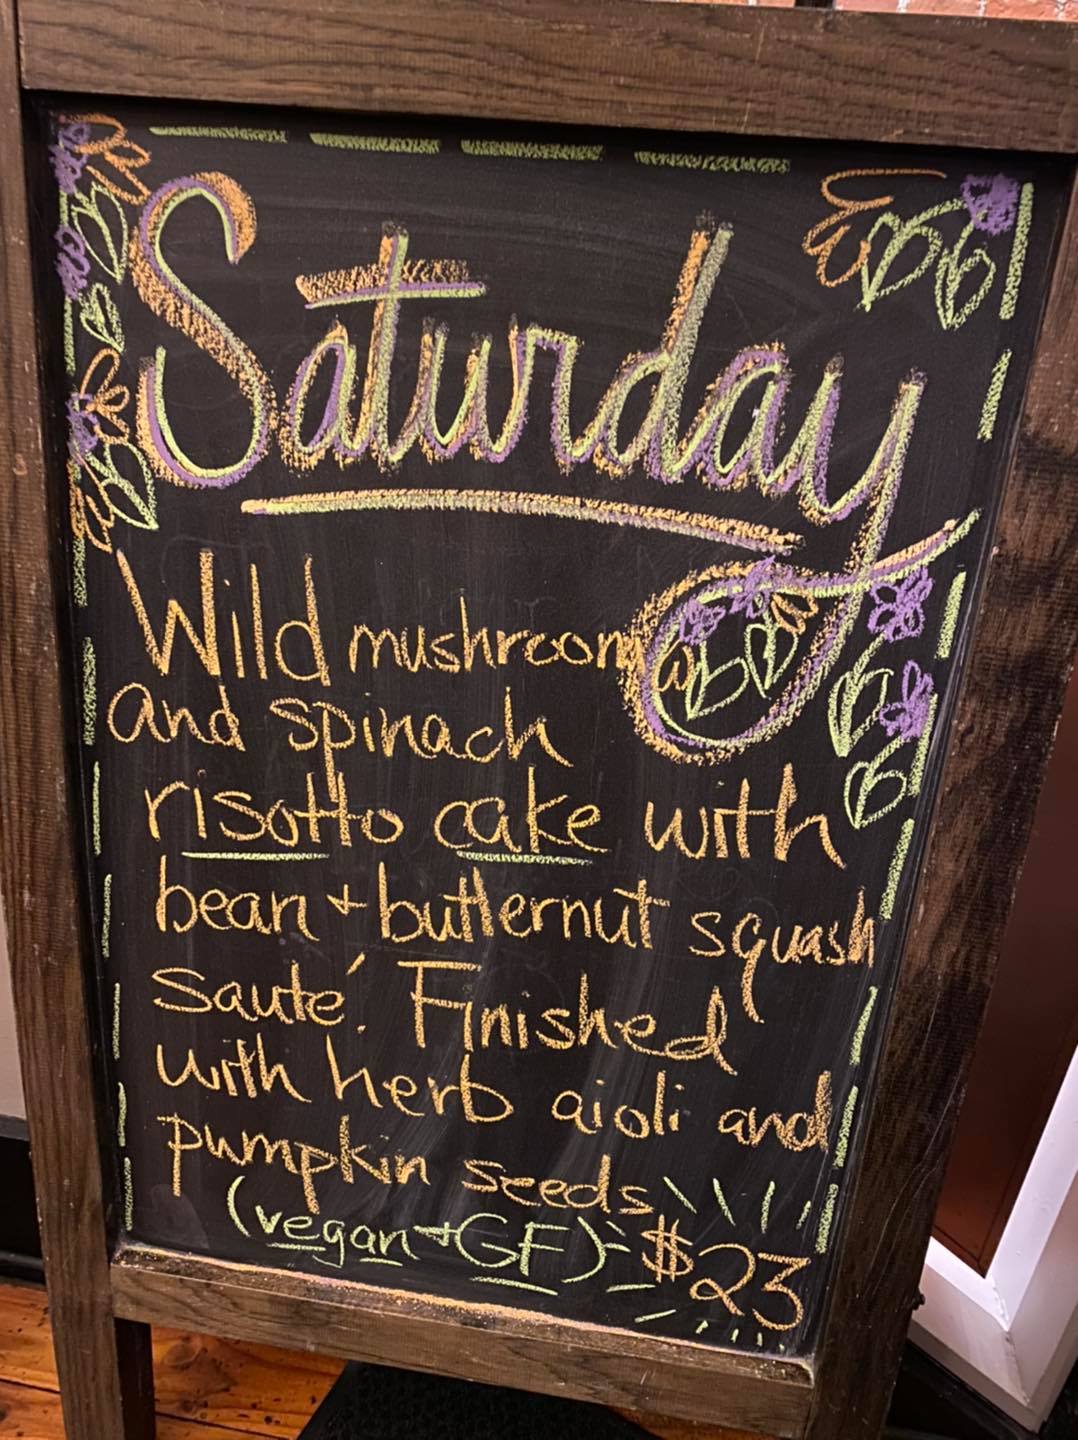 Saturday
Wild mushroom
and spinach
risotto cake with
bean + butternut squash
sauté. Finished
with herb aioli and
pumpkin seeds
(vegan + GF) $23